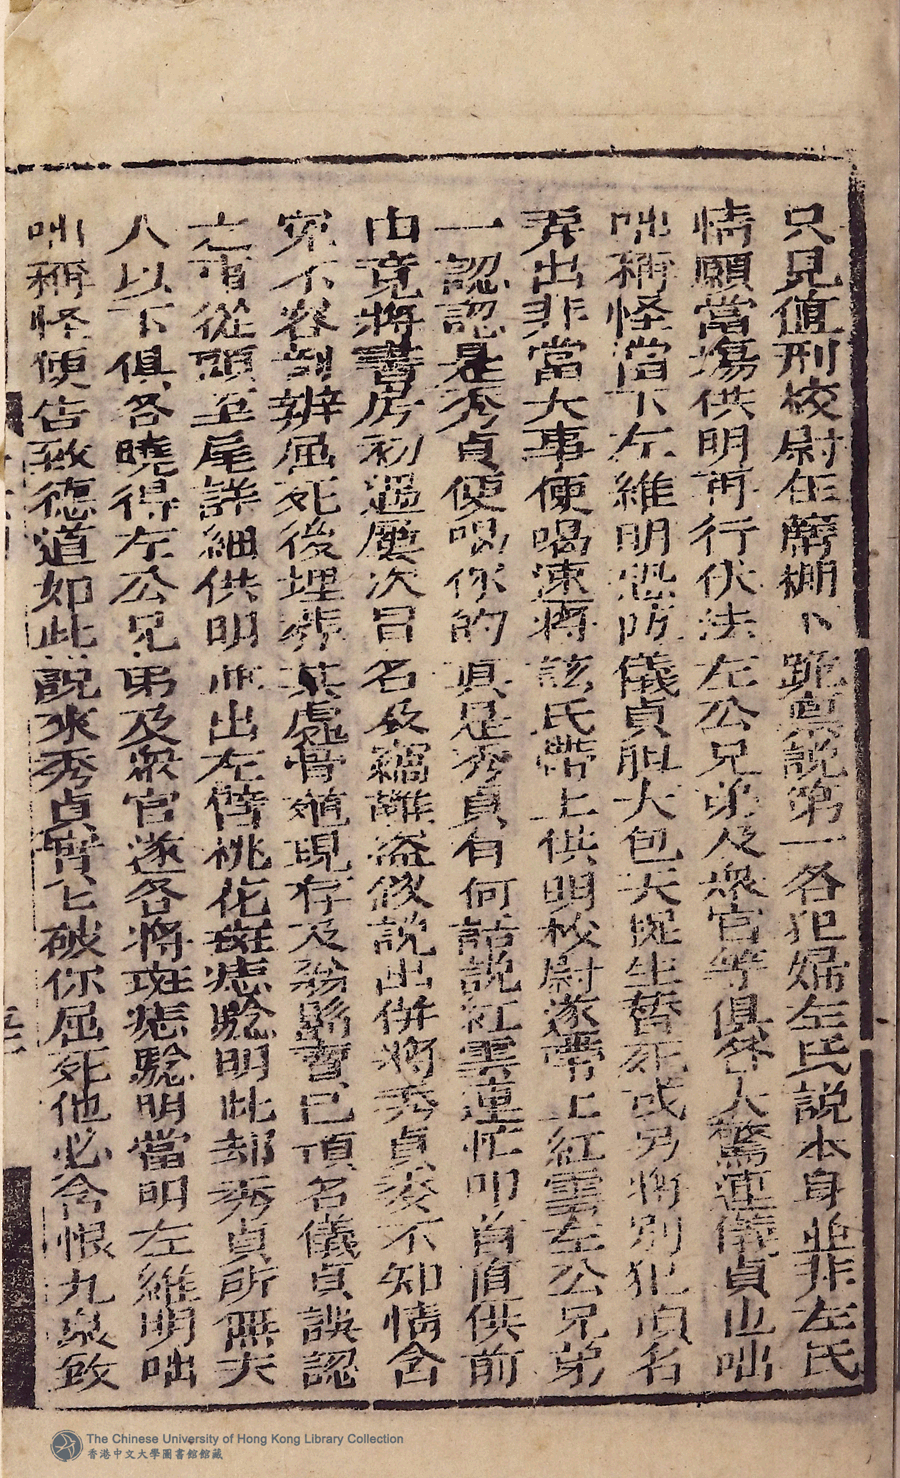 只見値刑校尉在蓆棚下跪稟說第一各犯婦左氏說本身並非左氏
情願當塲供明再行伏法左公兄弟及衆官等俱各大驚連儀貞也咄
咄稱怪當下左維明恐防儀貞胆大包天捉生替死或另將別犯頂名
弄出非當大事便喝速將該氏帶上供明校尉遂帶上紅雲左公兄弟
一認認是秀貞便喝你的真是秀貞有何話說紅雲連忙叩首直供前
由竟將書房初過屢次冒名及竊雕盗做說出併將秀貞妾不知情含
冤不容剖辨屈死後埋葬某處骨殖現存及翁縣曹已頂名儀貞誤認
亡者從頭至尾詳細供明亦出左傍桃花斑痣騐明此却秀貞所無夫
人以下俱各曉得左公兄弟及衆官遂各將斑痣騐明當明左維明咄
咄稱怪便告致德道如此說來秀貞實乞破你屈死他必含恨九泉致
The Chinese University of Hong Kong Library Collection
香港中文大學圖書館館藏